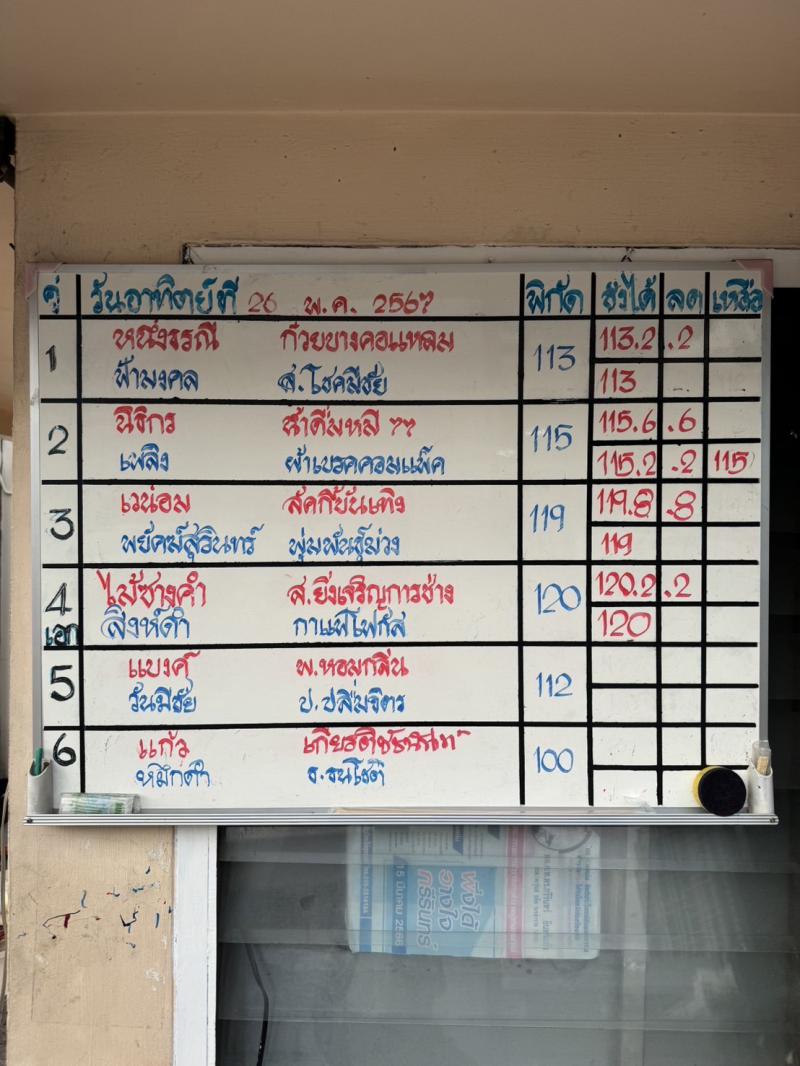 คู่ วันอาทิตย์ที่ 26 พ.ค. 2567 พิกัด ชั่งได้ ลด เหลือ
1 หนึ่งธรณี ก้วยบางคอแหลม 113 113.2 .2
ฟ้ามงคล ส.โชคมีชัย 113
2 นิธิกร 77 115 115.6 .6
เพลิง ผ้าเบรคคอมแพ็ค 115.2 .2 115
3 เวน่อม สักกี้บันเทิง 119 119.8 .8
พยัคฆ์สุรินทร์ พุ่มพันธุ์ม่วง 119
4 ไม้ซางคำ ส.ยิ่งเจริญการช่าง 120 120.2 .2
เอก สิงห์ดำ กาแฟโฟกัส 120
5 แบงค์ พ.หอมกลิ่น 112
วันมีชัย ป.ปลื้มจิตร
6 แก้ว 100
หมึกดำ ธ.ธนโชติ
15 มีนาคม